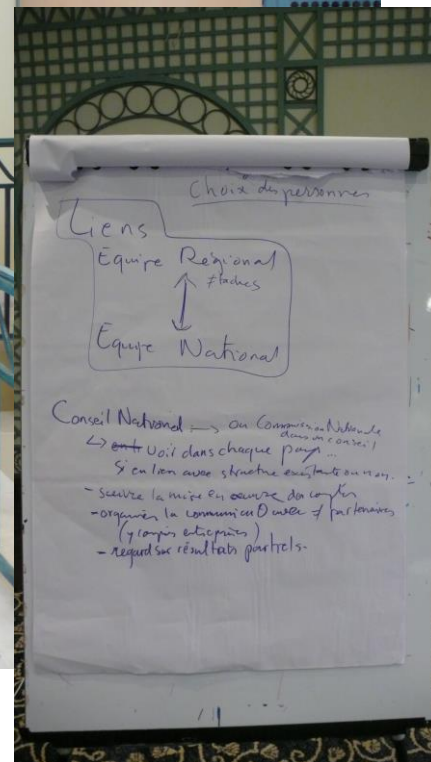 Choix des personnes
Liens
Équipe Régional
≠ taches
Équipe National
Conseil National → ou Commission Nationale
dans un conseil
↳ Voir dans chaque pays...
Si en lien avec structure existante ou non.
- suivre la mise en œuvre des comptes
- organiser la communicaO avec ≠ partenaires
(y compris entreprises)
- regard sur résultats partiels.